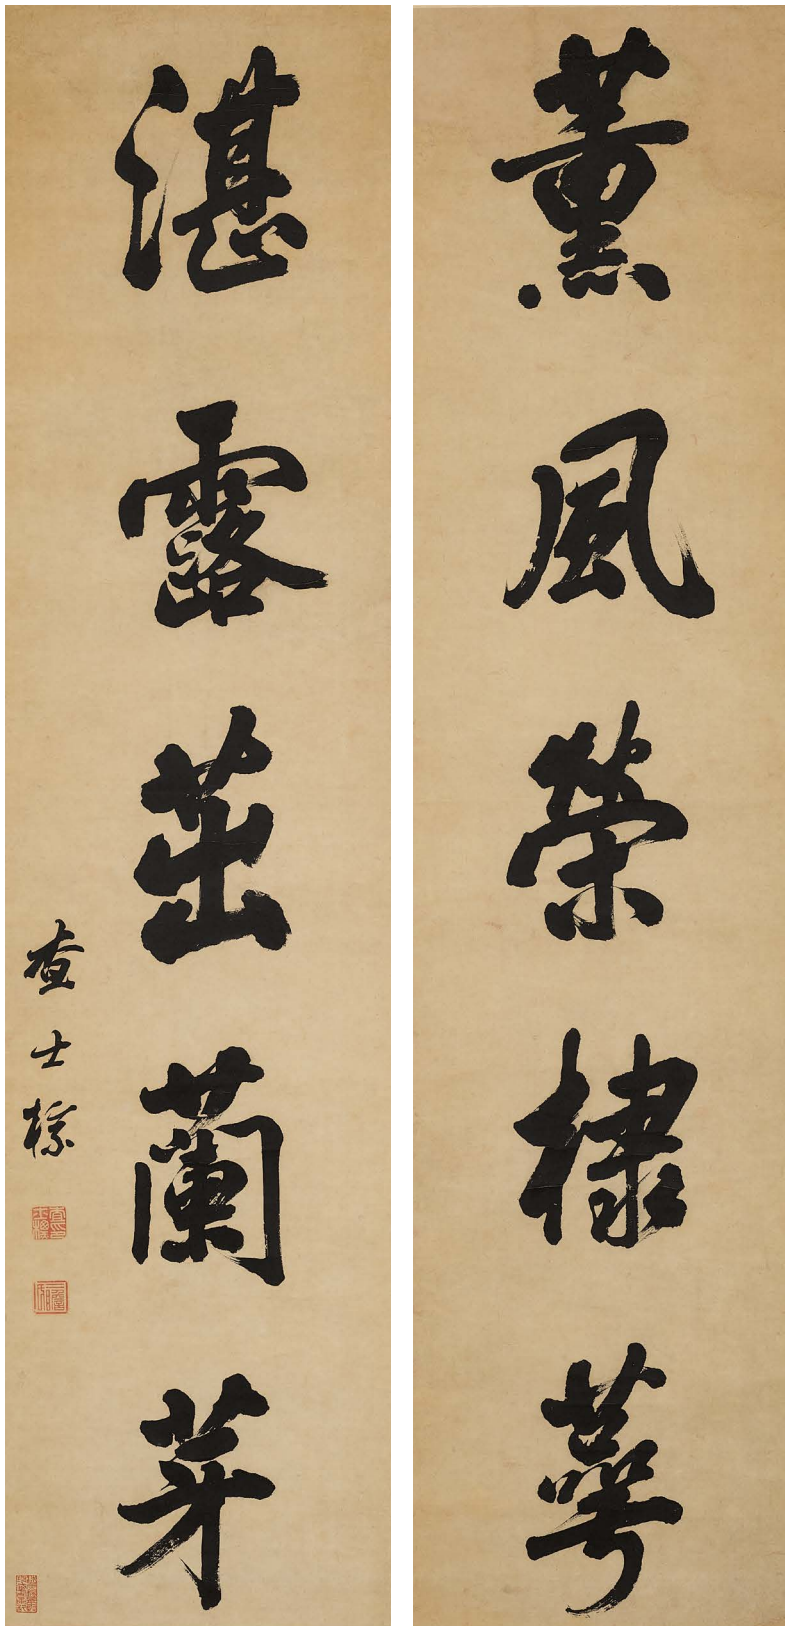 薰風榮棣萼
湛露茁蘭芽
查士標